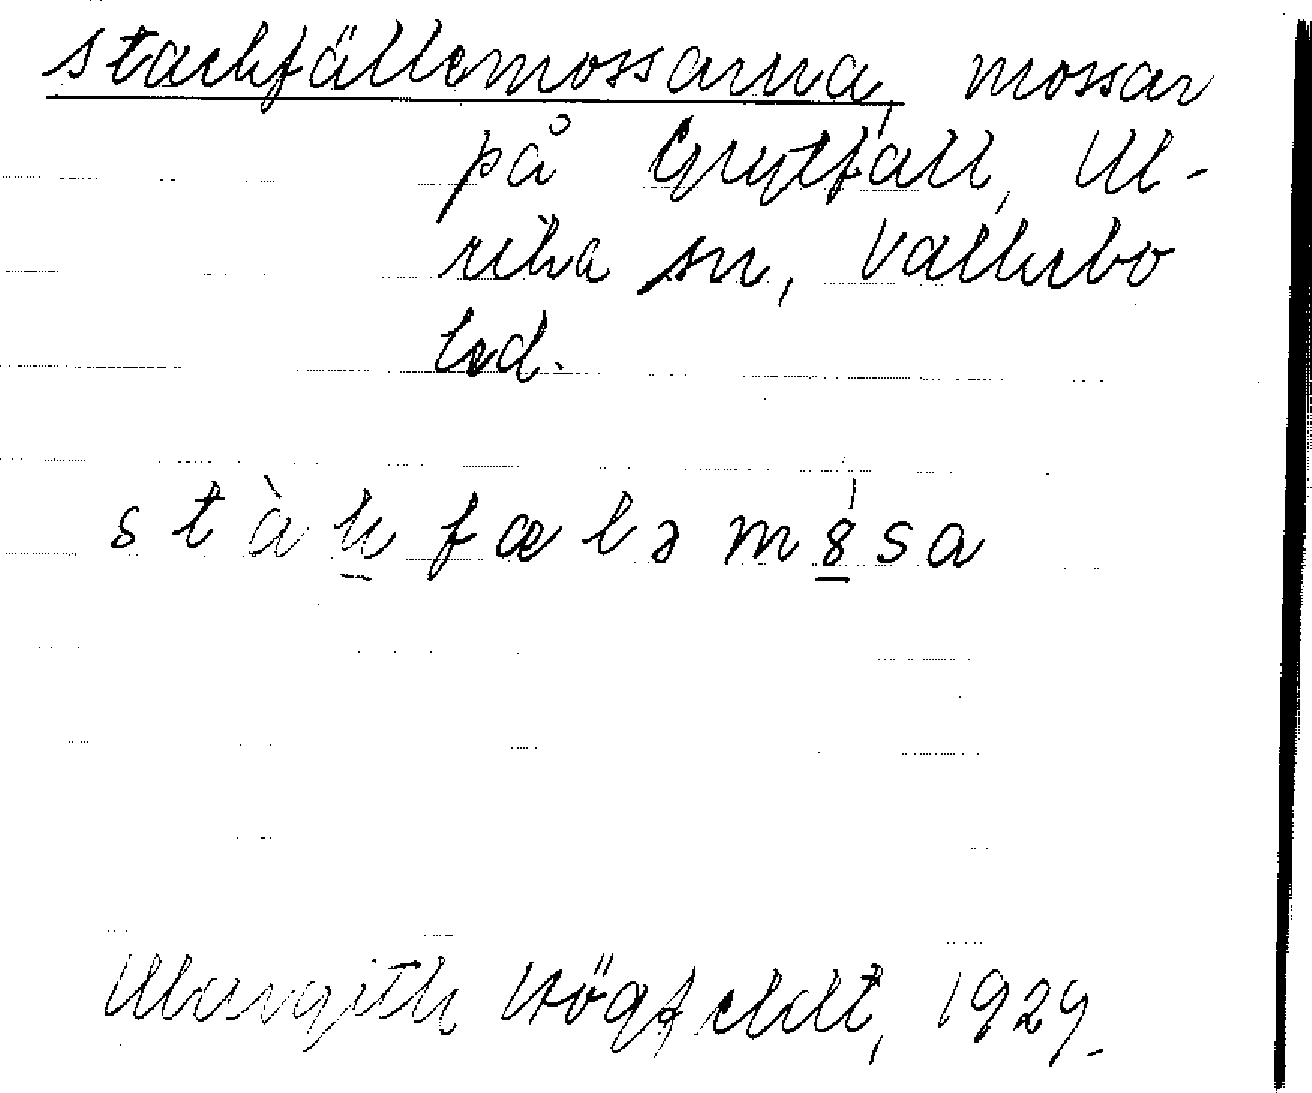 stackfällemossarna, mossar
på Grytfall, Ul-
rika sn, Valkebo
hd.
stàkfæləm8sa
Margith Högfeldt, 1929.